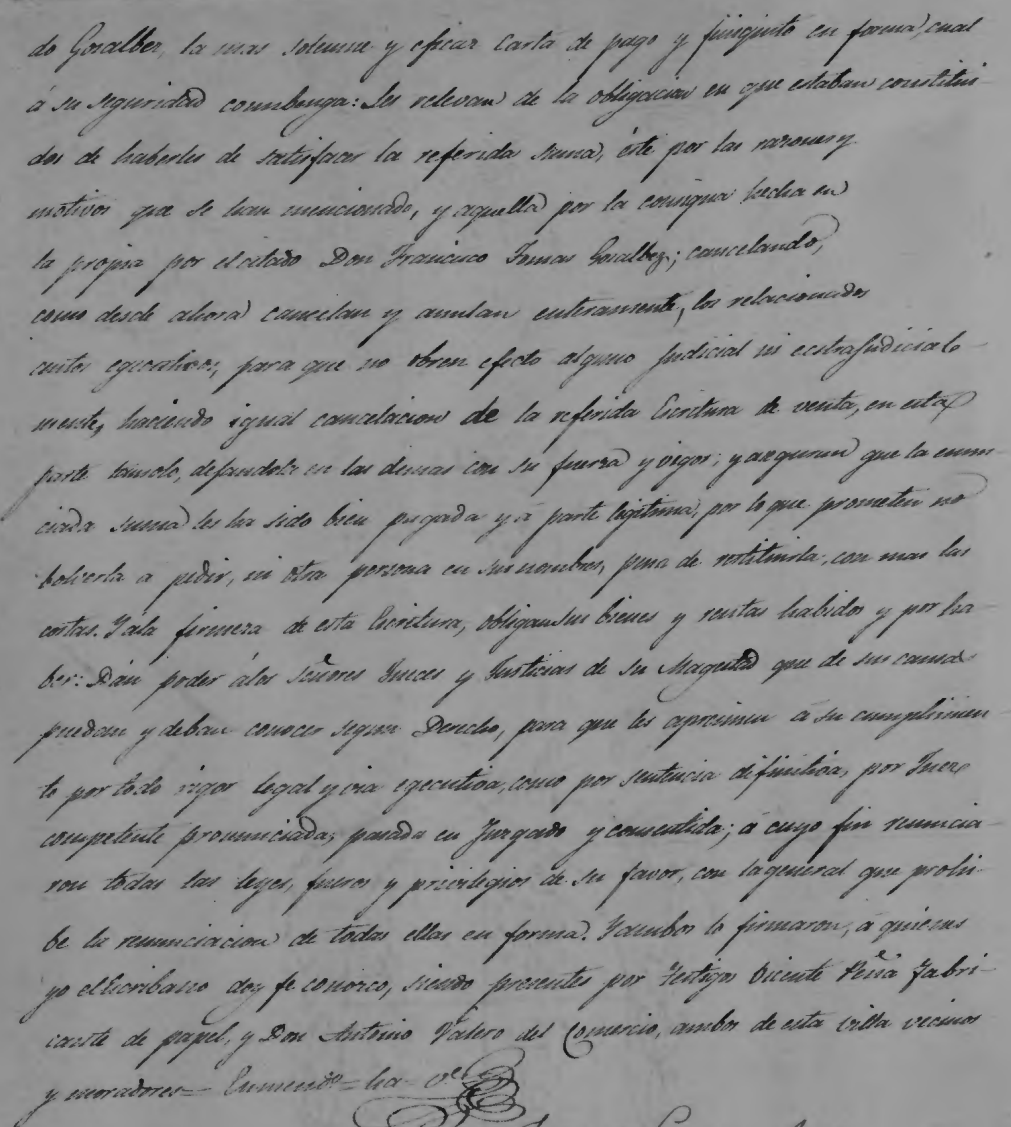 do Gosalbez, la mas solemne y eficaz Carta de pago y finiquito en forma, cual
á su seguridad combenga: les relevan de la obligacion en que estaban constitui-
dos de haberles de satisfacer la referida suma, éste por las razones y
motivos que se han mencionado, y aquella por la consigna hecha en
la propia por el citado Don Francisco Tomas Gosalbez; cancelando,
como desde ahora cancelan y anulan enteramente, los relacionados
autos egecutivos, para que no obren efecto alguno judicial ni ecstrajudicial-
mente, haciendo igual cancelacion de la referida Escritura de venta, en esta
parte tansolo, dejandola en las demas con su fuerza y vigor; y aseguran que la enun-
ciada suma les ha sido bien pagada y á parte legitima, por lo que prometen no
bolverla a pedir, ni otra persona en sus nombres, pena de restituirla, con mas las
costas. Y ala firmeza de esta Escritura, obligan sus bienes y rentas habidos y por ha-
ber: Dán poder álos Señores Jueces y Justicias de su Magestad que de sus causas
puedan y deban conocer segun Derecho, para que les apremien á su cumplimien-
to por todo rigor legal y via egecutiva, como por sentencia difinitiva, por Juez
competente pronunciada, pasada en Juzgado y consentida; á cuyo fin renuncia-
ron todas las leyes, fueros y privilegios de su favor, con lageneral que prohi-
be la renunciacion de todas ellas en forma. Y ambos lo firmaron, á quienes
yo el Escribano doy fe conozco, siendo presentes por Testigos Vicente Peña Fabri-
cante de papel, y Don Antonio Valero del Comercio, ambos de esta villa vecinos
y moradores= Enmendo= ha=